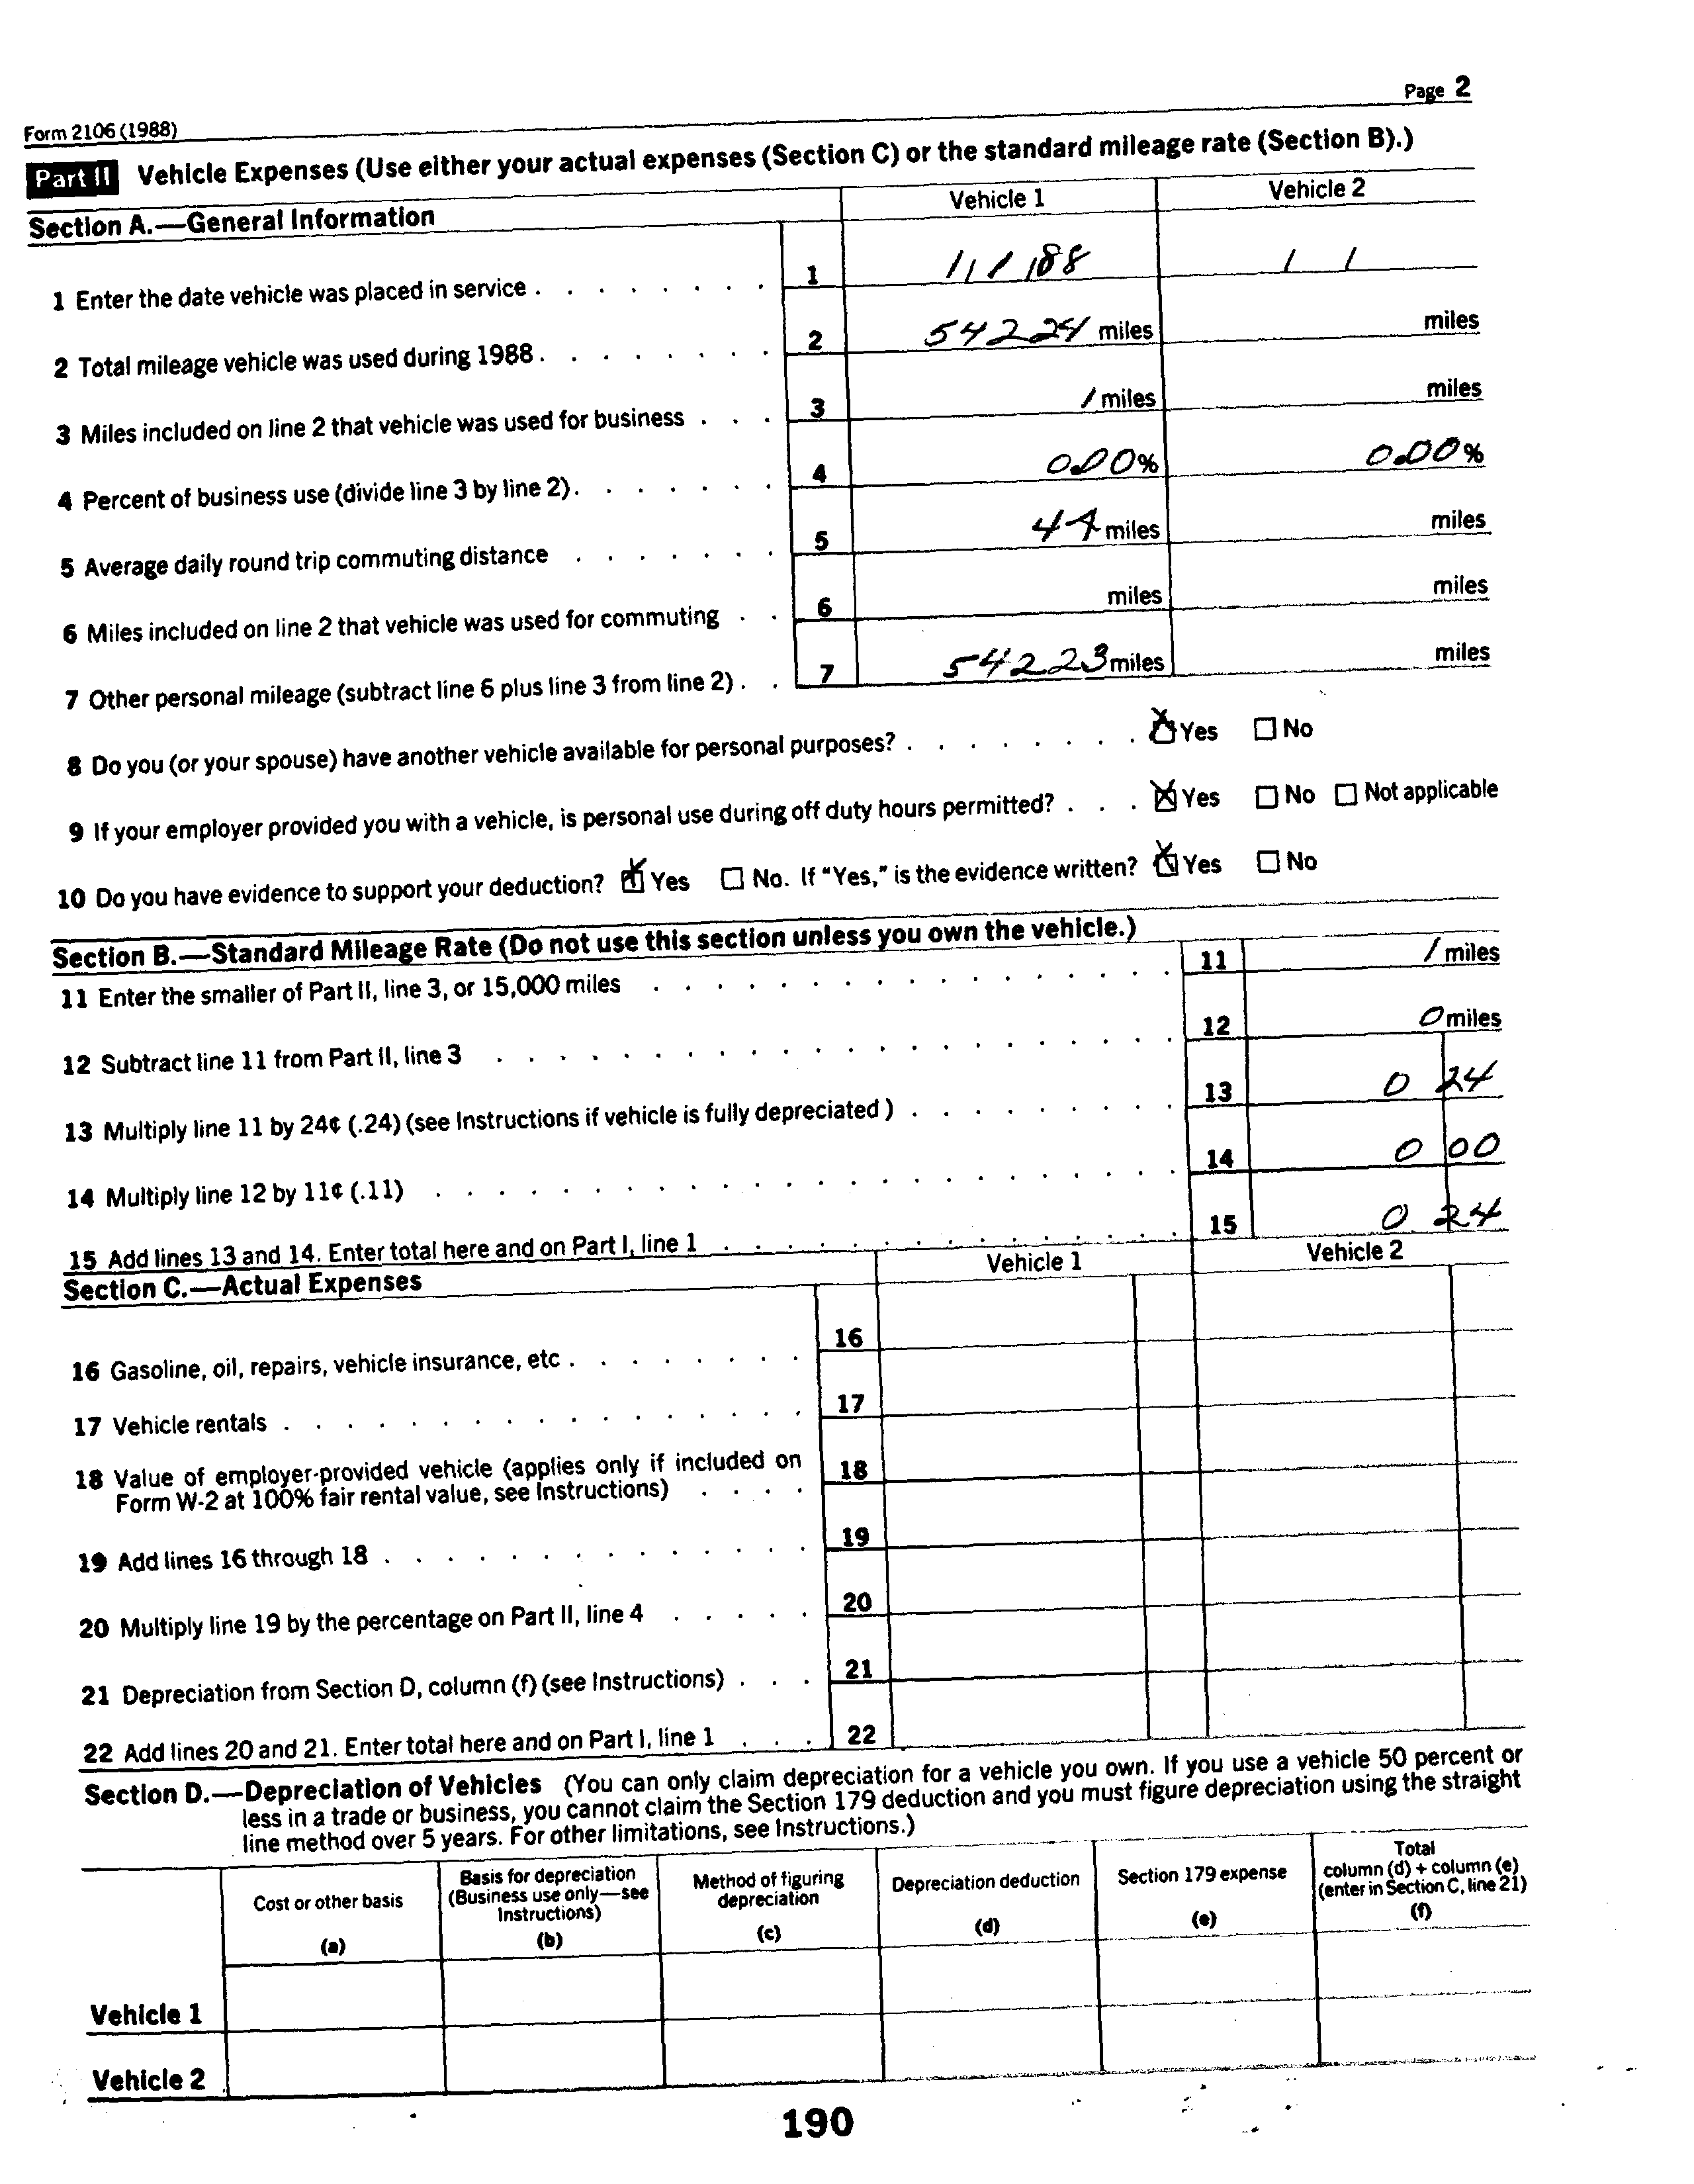 Page 2
Form 2106 (1988)
Part II Vehicle Expenses (Use either your actual expenses (Section C) or the standard mileage rate (Section B).)
Section A.—General Information Vehicle 1 Vehicle 2
1 Enter the date vehicle was placed in service . . . . . . . . 1 1/1/88 / /
2 Total mileage vehicle was used during 1988 . . . . . . . . 2 54224 miles miles
3 Miles included on line 2 that vehicle was used for business . . . 3 1 miles miles
4 Percent of business use (divide line 3 by line 2) . . . . . . . 4 0.00% 0.00%
5 Average daily round trip commuting distance . . . . . . . 5 44 miles miles
6 Miles included on line 2 that vehicle was used for commuting . . 6 miles miles
7 Other personal mileage (subtract line 6 plus line 3 from line 2) . . 7 54223 miles miles
8 Do you (or your spouse) have another vehicle available for personal purposes? . . . . . . . . ☒ Yes ☐ No
9 If your employer provided you with a vehicle, is personal use during off duty hours permitted? . . . ☒ Yes ☐ No ☐ Not applicable
10 Do you have evidence to support your deduction? ☒ Yes ☐ No. If "Yes," is the evidence written? ☒ Yes ☐ No
Section B.—Standard Mileage Rate (Do not use this section unless you own the vehicle.)
11 Enter the smaller of Part II, line 3, or 15,000 miles . . . . . . . . . . . . . . . . . 11 1 miles
12 Subtract line 11 from Part II, line 3 . . . . . . . . . . . . . . . . . . . . . . 12 0 miles
13 Multiply line 11 by 24¢ (.24) (see Instructions if vehicle is fully depreciated ) . . . . . . . . . 13 0 24
14 Multiply line 12 by 11¢ (.11) . . . . . . . . . . . . . . . . . . . . . . . . 14 0 00
15 Add lines 13 and 14. Enter total here and on Part I, line 1 . . . . . . . . . . . . . . . 15 0 24
Section C.—Actual Expenses Vehicle 1 Vehicle 2
16 Gasoline, oil, repairs, vehicle insurance, etc . . . . . . . . 16
17 Vehicle rentals . . . . . . . . . . . . . . . . . 17
18 Value of employer-provided vehicle (applies only if included on
Form W-2 at 100% fair rental value, see Instructions) . . . . 18
19 Add lines 16 through 18 . . . . . . . . . . . . . . 19
20 Multiply line 19 by the percentage on Part II, line 4 . . . . . 20
21 Depreciation from Section D, column (f) (see Instructions) . . . 21
22 Add lines 20 and 21. Enter total here and on Part I, line 1 . . . 22
Section D.—Depreciation of Vehicles (You can only claim depreciation for a vehicle you own. If you use a vehicle 50 percent or
less in a trade or business, you cannot claim the Section 179 deduction and you must figure depreciation using the straight
line method over 5 years. For other limitations, see Instructions.)
Cost or other basis
(a)
Basis for depreciation
(Business use only—see
Instructions)
(b)
Method of figuring
depreciation
(c)
Depreciation deduction
(d)
Section 179 expense
(e)
Total
column (d) + column (e)
(enter in Section C, line 21)
(f)
Vehicle 1
Vehicle 2
190